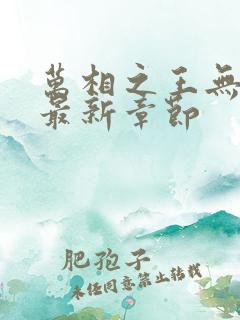 萬相之王無
最新章節
肥孜子
未经同意禁止转载